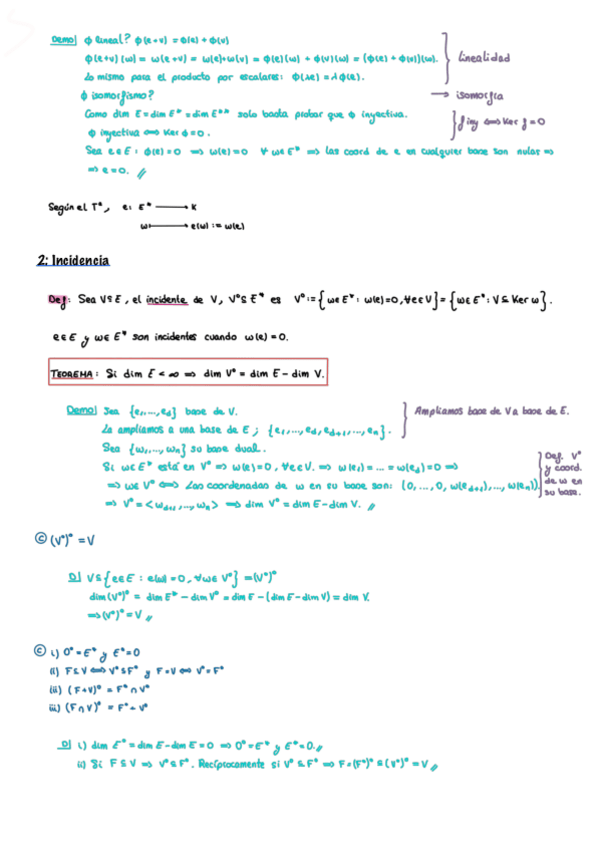 Demo| ϕ lineal? ϕ(e+v) = ϕ(e) + ϕ(v)
ϕ(e+v)(ω) = ω(e+v) = ω(e)+ω(v) = ϕ(e)(ω) + ϕ(v)(ω) = (ϕ(e) + ϕ(v))(ω). linealidad
Lo mismo para el producto por escalares: ϕ(λe) = λϕ(e).
ϕ isomorfismo? → isomorfía
Como dim E = dim E* = dim E** solo basta probar que ϕ inyectiva. f iny ⟺ Ker f = 0
ϕ inyectiva ⟺ Ker ϕ = 0.
Sea e∈E : ϕ(e) = 0 ⟹ ω(e) = 0 ∀ ω∈E* ⟹ las coord de e en cualquier base son nulas ⟹
⟹ e = 0. //
Según el Tª, e: E* ⟶ K
ω ⟼ e(ω) := ω(e)
2: Incidencia
Def: Sea V⊆E, el incidente de V, V°⊆E* es V° := {ω∈E* : ω(e) = 0, ∀e∈V} = {ω∈E* : V⊆Ker ω}.
e∈E y ω∈E* son incidentes cuando ω(e) = 0.
TEOREMA: Si dim E < ∞ ⟹ dim V° = dim E - dim V.
Demo| Sea {e₁,...,e_d} base de V. Ampliamos base de V a base de E.
La ampliamos a una base de E ; {e₁,...,e_d, e_{d+1},...,e_n}.
Sea {ω₁,...,ω_n} su base dual.
Si ω∈E* está en V° ⟹ ω(e) = 0, ∀e∈V. ⟹ ω(e₁) = ... = ω(e_d) = 0 ⟹ Def. V° y coord.
⟹ ω∈V° ⟺ Las coordenadas de ω en su base son: (0,...,0, ω(e_{d+1}),..., ω(e_n)). de ω en
⟹ V° = <ω_{d+1},..., ω_n> ⟹ dim V° = dim E - dim V. // su base.
Ⓒ (V°)° = V
D| V⊆{e∈E : e(ω) = 0, ∀ω∈V°} = (V°)°
dim(V°)° = dim E* - dim V° = dim E - (dim E - dim V) = dim V.
⟹ (V°)° = V //
Ⓒ i) 0° = E* y E° = 0
ii) F⊆V ⟺ V°⊆F° y F = V ⟺ V° = F°
iii) (F+V)° = F° ∩ V°
iii) (F∩V)° = F° + V°
D| i) dim E° = dim E - dim E = 0 ⟹ 0° = E* y E° = 0. //
ii) Si F⊆V ⟹ V°⊆F°. Recíprocamente si V°⊆F° ⟹ F = (F°)° ⊆ (V°)° = V //